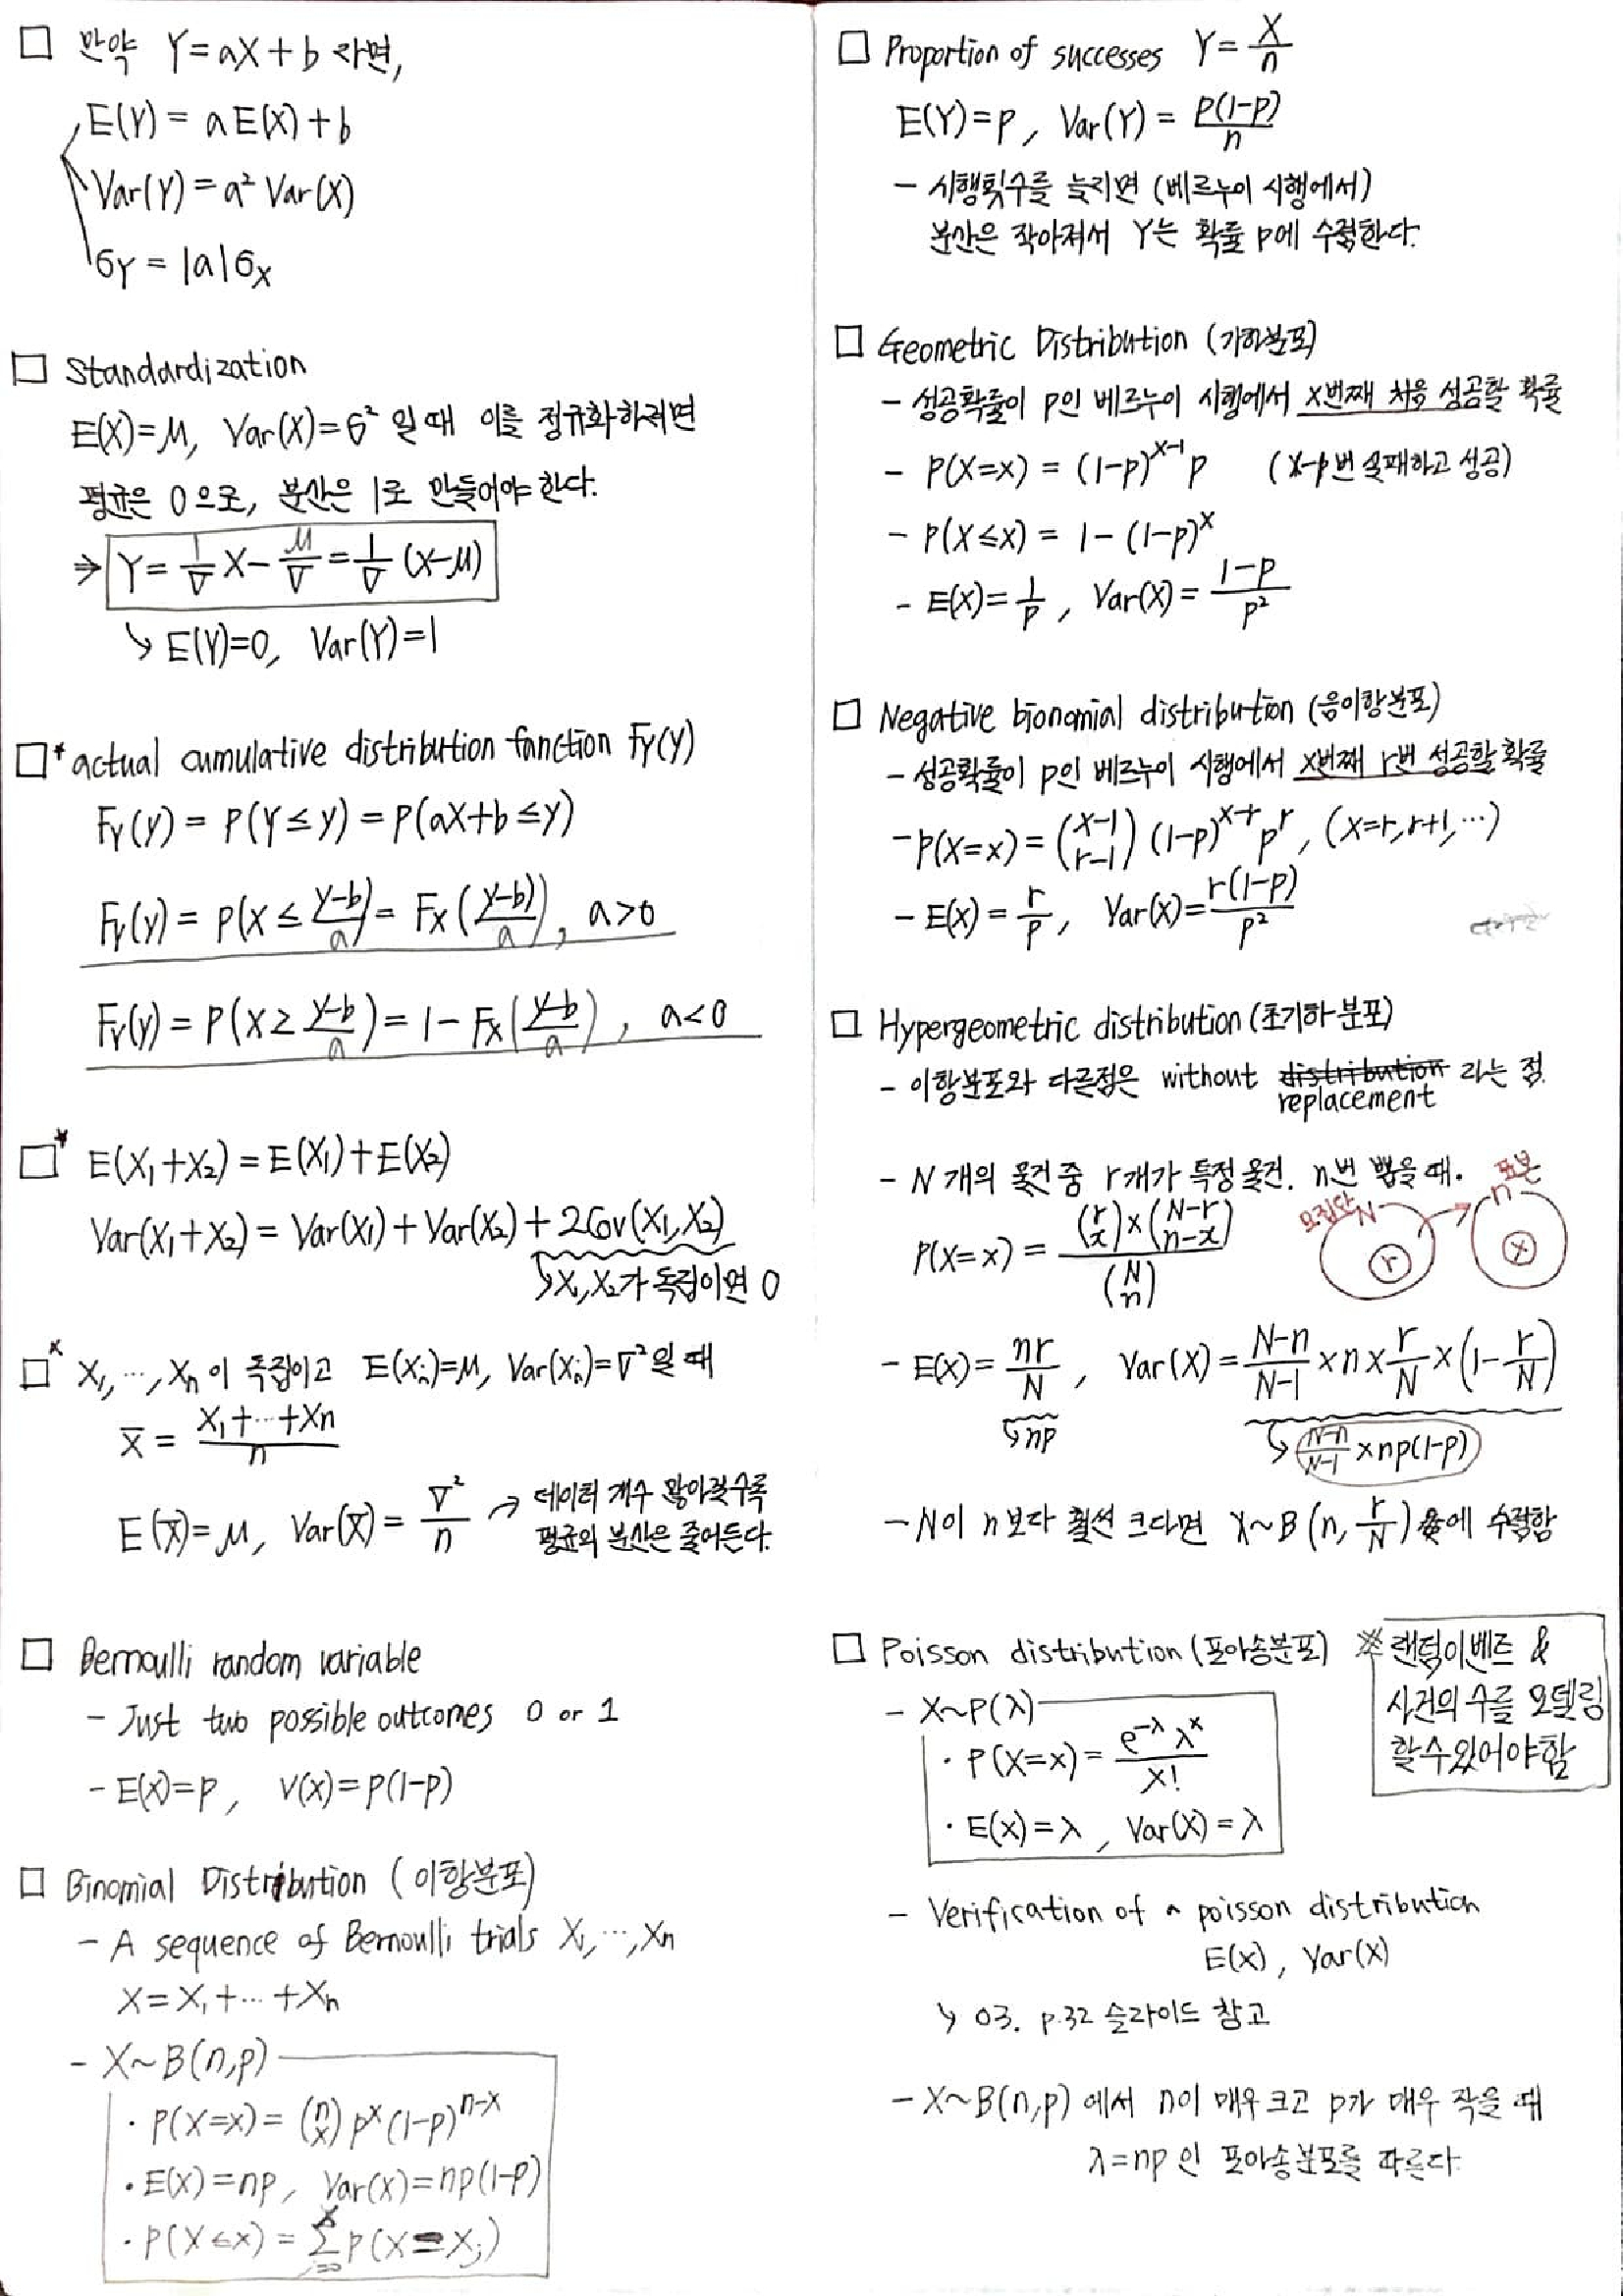 □ 만약 Y=aX+b 라면,
E(Y) = aE(X)+b
Var(Y) = a² Var(X)
σY = |a|σX
□ Standardization
E(X)=μ, Var(X)=σ² 일 때 이를 정규화하려면
평균은 0으로, 분산은 1로 만들어야 한다.
⇒ Y = 1/σ X - μ/σ = 1/σ (X-μ)
↳ E(Y)=0, Var(Y)=1
□* actual cumulative distribution function FY(y)
FY(y) = P(Y≤y) = P(aX+b≤y)
FY(y) = P(X ≤ (y-b)/a) = FX((y-b)/a), a>0
FY(y) = P(X ≥ (y-b)/a) = 1 - FX((y-b)/a), a<0
□* E(X₁+X₂) = E(X₁)+E(X₂)
Var(X₁+X₂) = Var(X₁) + Var(X₂) + 2Cov(X₁,X₂)
↳ X₁,X₂가 독립이면 0
□* X₁,⋯,Xn이 독립이고 E(Xi)=μ, Var(Xi)=σ²일 때
X̄ = (X₁+⋯+Xn)/n
E(X̄)=μ, Var(X̄) = σ²/n → 데이터 개수 많아질수록
평균의 분산은 줄어든다.
□ Bernoulli random variable
- Just two possible outcomes 0 or 1
- E(X)=p, V(X)=p(1-p)
□ Binomial Distribution (이항분포)
- A sequence of Bernoulli trials X₁,⋯,Xn
X = X₁+⋯+Xn
- X~B(n,p)
· P(X=x) = (n x) p^x (1-p)^(n-x)
· E(X)=np, Var(X)=np(1-p)
· P(X≤x) = Σ P(X=Xj)
□ Proportion of successes Y = X/n
E(Y)=p, Var(Y) = p(1-p)/n
- 시행횟수를 늘리면 (베르누이 시행에서)
분산은 작아져서 Y는 확률 p에 수렴한다.
□ Geometric Distribution (기하분포)
- 성공확률이 p인 베르누이 시행에서 x번째 처음 성공할 확률
- P(X=x) = (1-p)^(x-1) p (x-1번 실패하고 성공)
- P(X≤x) = 1 - (1-p)^x
- E(X) = 1/p, Var(X) = (1-p)/p²
□ Negative bionomial distribution (음이항분포)
- 성공확률이 p인 베르누이 시행에서 x번째 r번 성공할 확률
- P(X=x) = (x-1 r-1) (1-p)^(x-r) p^r, (x=r,r+1,⋯)
- E(X) = r/p, Var(X) = r(1-p)/p²
□ Hypergeometric distribution (초기하 분포)
- 이항분포와 다른점은 without distribution 라는 점.
replacement
- N개의 물건 중 r개가 특정 물건. n번 뽑을 때.
모집단 N r 표본 n x
P(X=x) = (r x)×(N-r n-x) / (N n)
- E(X) = nr/N, Var(X) = (N-n)/(N-1) × n × r/N × (1 - r/N)
↳ np ↳ (N-n)/(N-1) × np(1-p)
- N이 n보다 훨씬 크다면 X~B(n, r/N)에 수렴함
□ Poisson distribution (포아송분포)
※ 랜덤이벤트 &
사건의 수를 모델링
할 수 있어야 함
- X~P(λ)
· P(X=x) = e^(-λ) λ^x / x!
· E(X)=λ, Var(X)=λ
- Verification of a poisson distribution
E(X), Var(X)
↳ 03. p.32 슬라이드 참고
- X~B(n,p) 에서 n이 매우 크고 p가 매우 작을 때
λ=np 인 포아송분포를 따른다.